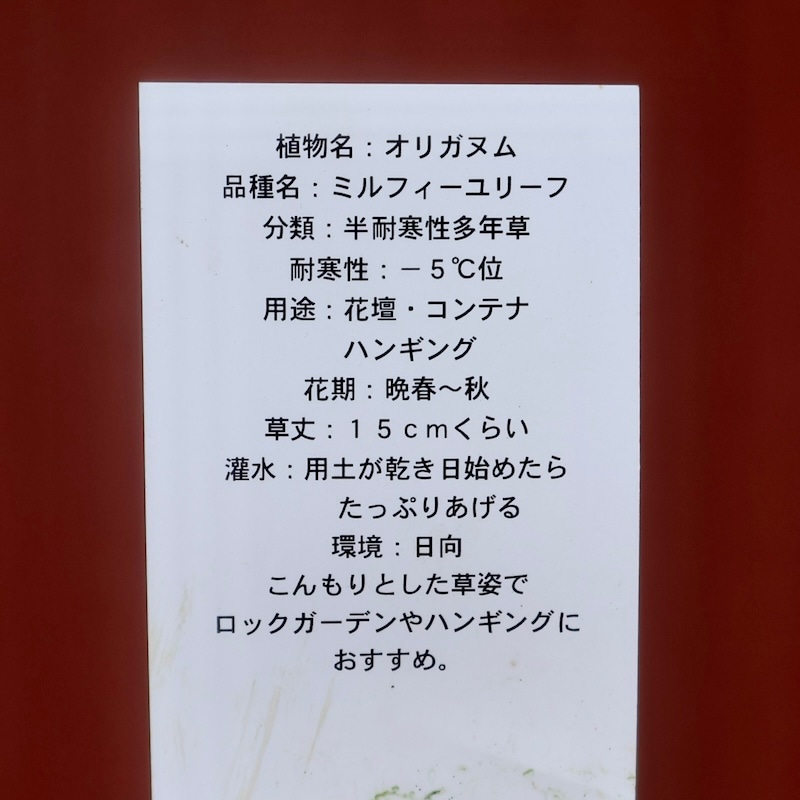 植物名：オリガヌム
品種名：ミルフィーユリーフ
分類：半耐寒性多年草
耐寒性：－５℃位
用途：花壇・コンテナ
ハンギング
花期：晩春～秋
草丈：１５ｃｍくらい
灌水：用土が乾き日始めたら
たっぷりあげる
環境：日向
こんもりとした草姿で
ロックガーデンやハンギングに
おすすめ。